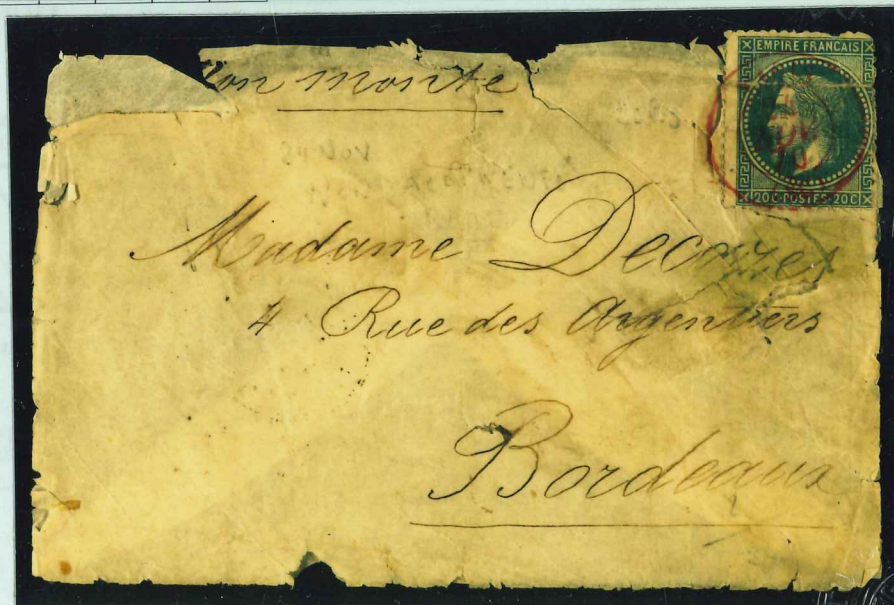 lon monté
EMPIRE FRANCAIS
20 C · POSTES · 20 C
Madame Decazes
4 Rue des Argentiers
Bordeaux